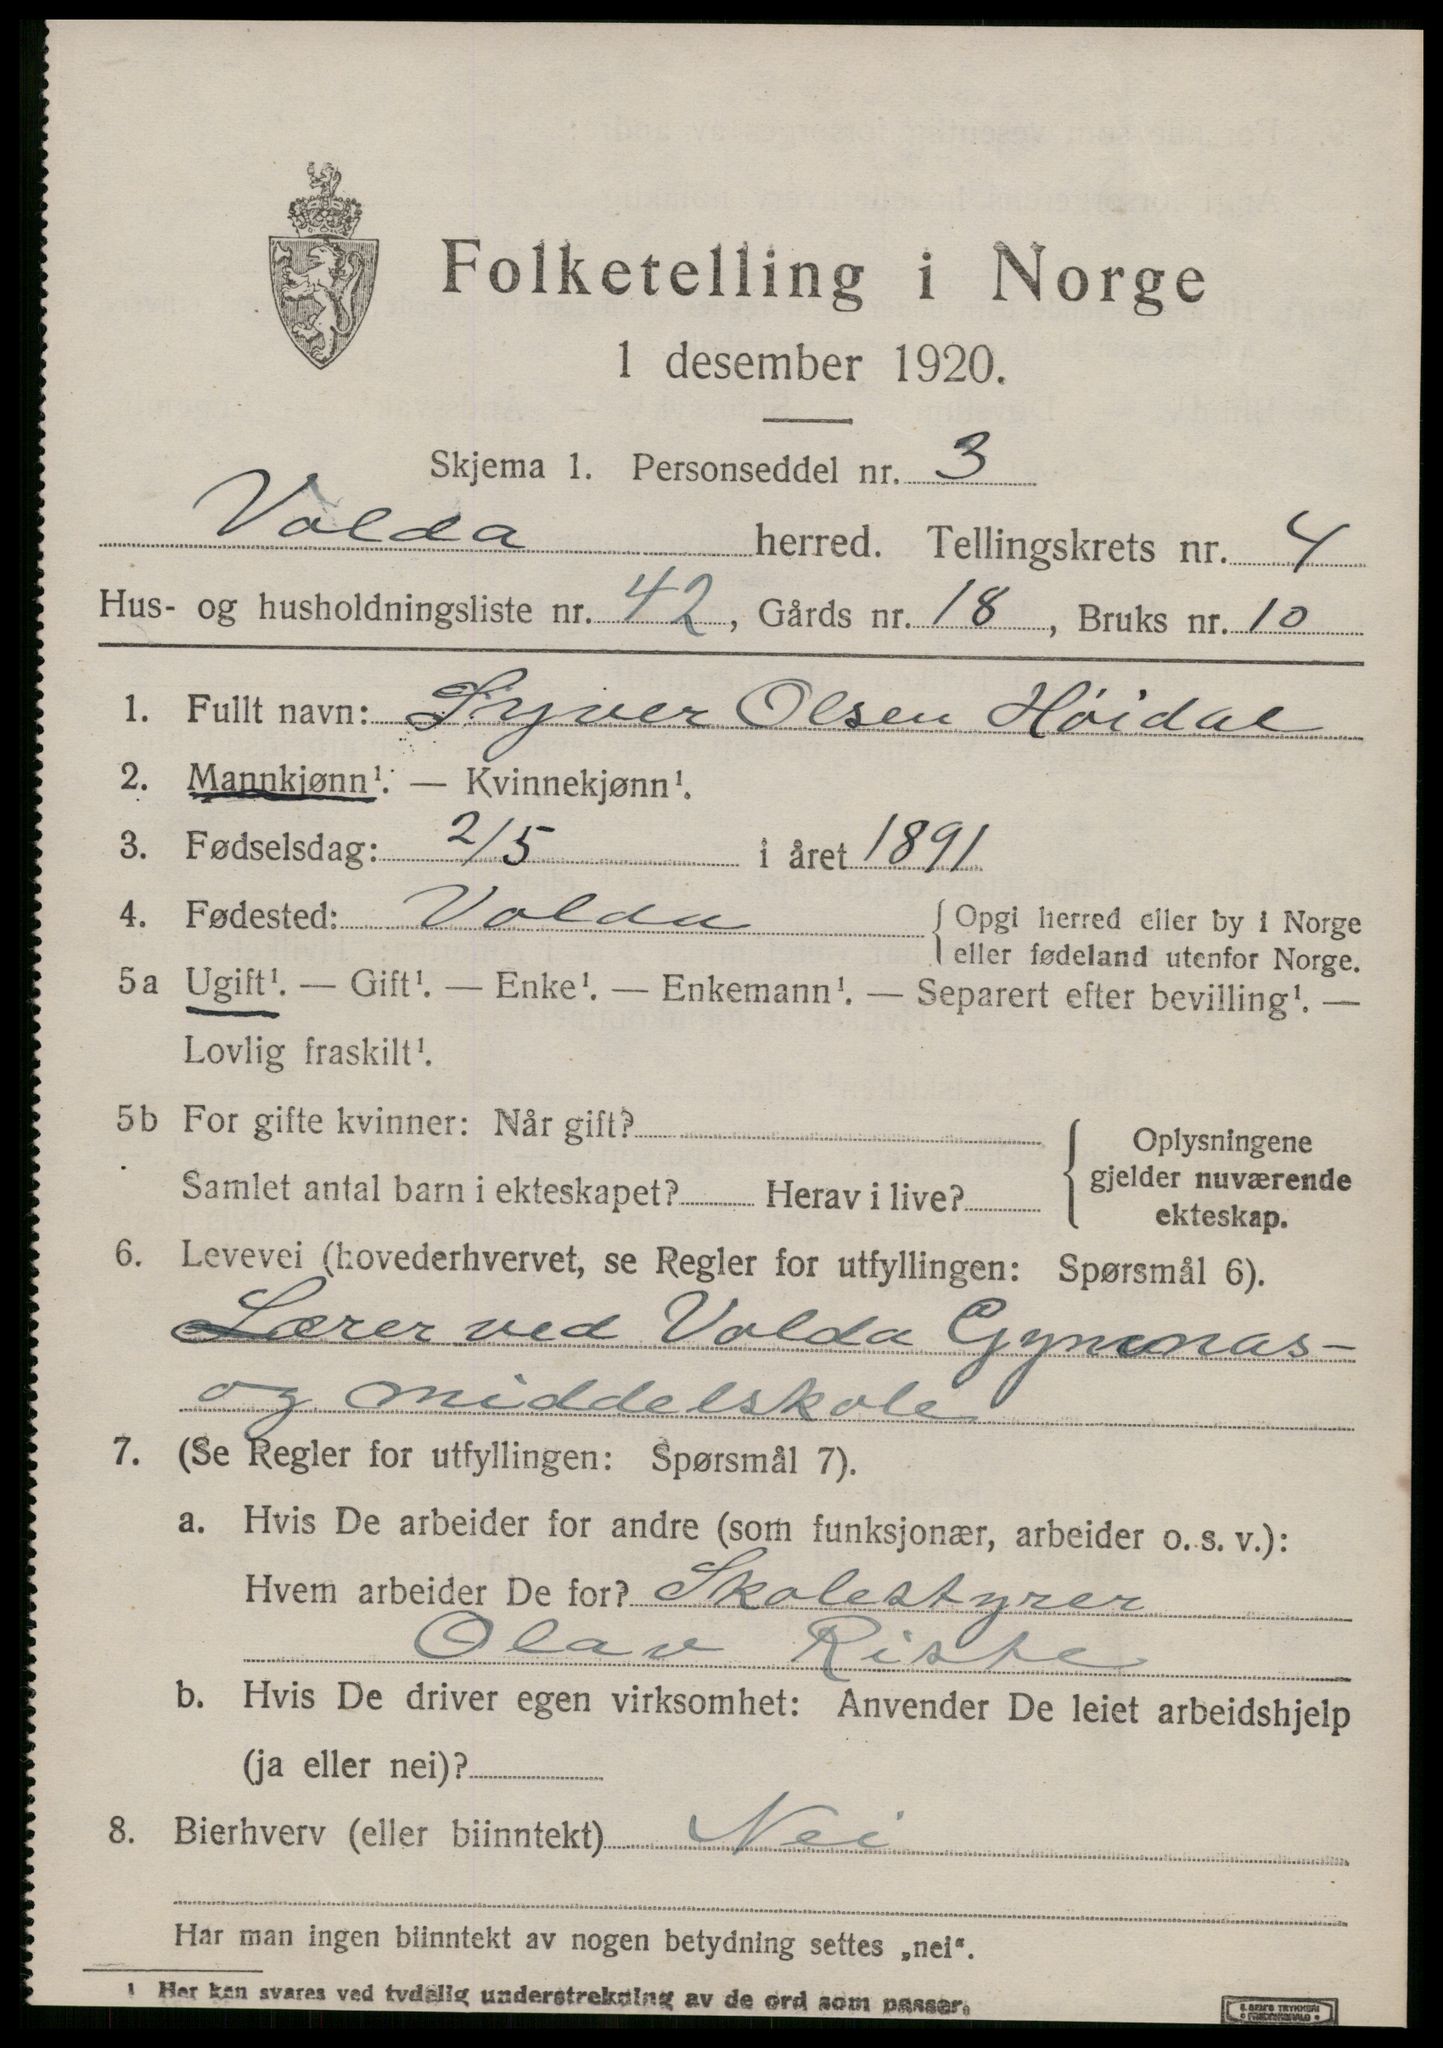 Folketelling i Norge
1 desember 1920.
Skjema 1. Personseddel nr. 3
Volda herred. Tellingskrets nr. 4
Hus- og husholdningsliste nr. 42, Gårds nr. 18, Bruks nr. 10
1. Fullt navn: Syver Olsen Höidal
2. Mannkjønn¹. — Kvinnekjønn¹.
3. Fødselsdag: 2/5 i året 1891
4. Fødested: Volda { Opgi herred eller by i Norge
eller fødeland utenfor Norge.
5a Ugift¹. — Gift¹. — Enke¹. — Enkemann¹. — Separert efter bevilling¹. —
Lovlig fraskilt¹.
5b For gifte kvinner: Når gift?
Samlet antal barn i ekteskapet? Herav i live?
{ Oplysningene
gjelder nuværende
ekteskap.
6. Levevei (hovederhvervet, se Regler for utfyllingen: Spørsmål 6).
Lærer ved Volda Gymnas-
og middelskole
7. (Se Regler for utfyllingen: Spørsmål 7).
a. Hvis De arbeider for andre (som funksjonær, arbeider o. s. v.):
Hvem arbeider De for? Skolestyrer
Olav Riste
b. Hvis De driver egen virksomhet: Anvender De leiet arbeidshjelp
(ja eller nei)?
8. Bierhverv (eller biinntekt) Nei
Har man ingen biinntekt av nogen betydning settes „nei“.
1 Her kan svares ved tydelig understrekning av de ord som passer.